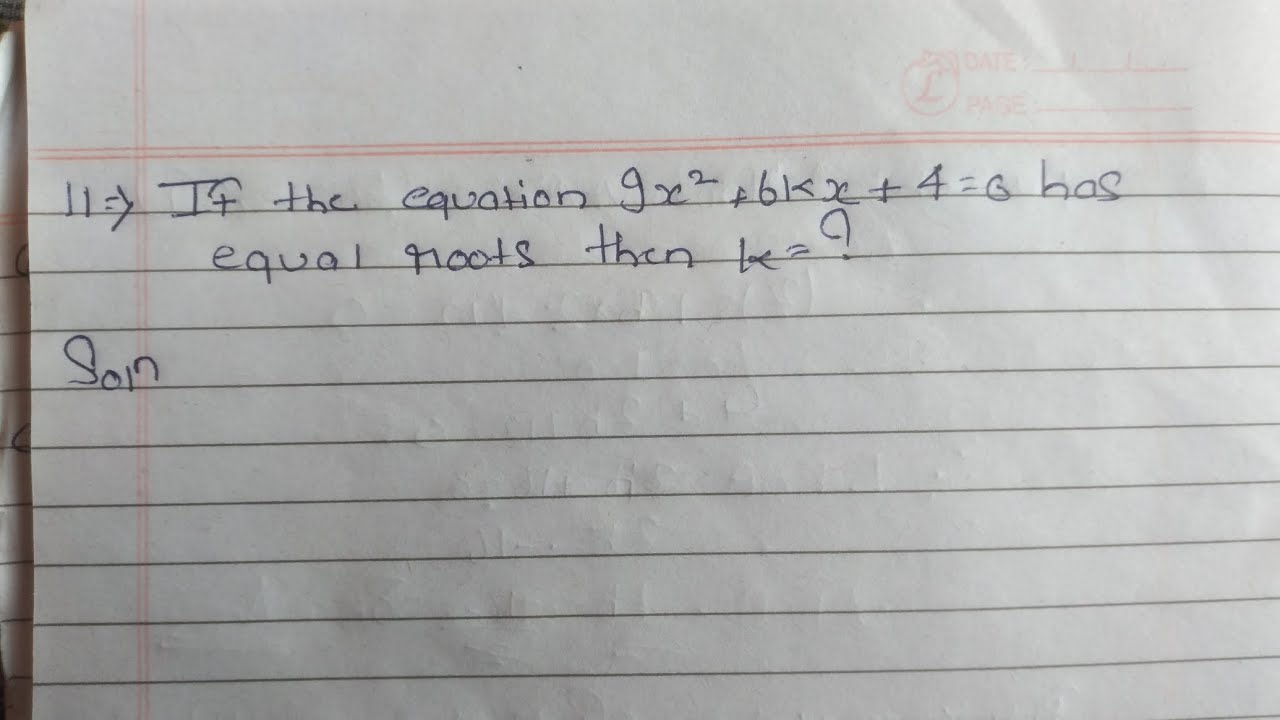 DATE :
PAGE :
11⇒ If the equation 9x² + 6kx + 4 = 0 has
equal roots then k = ?
Soln